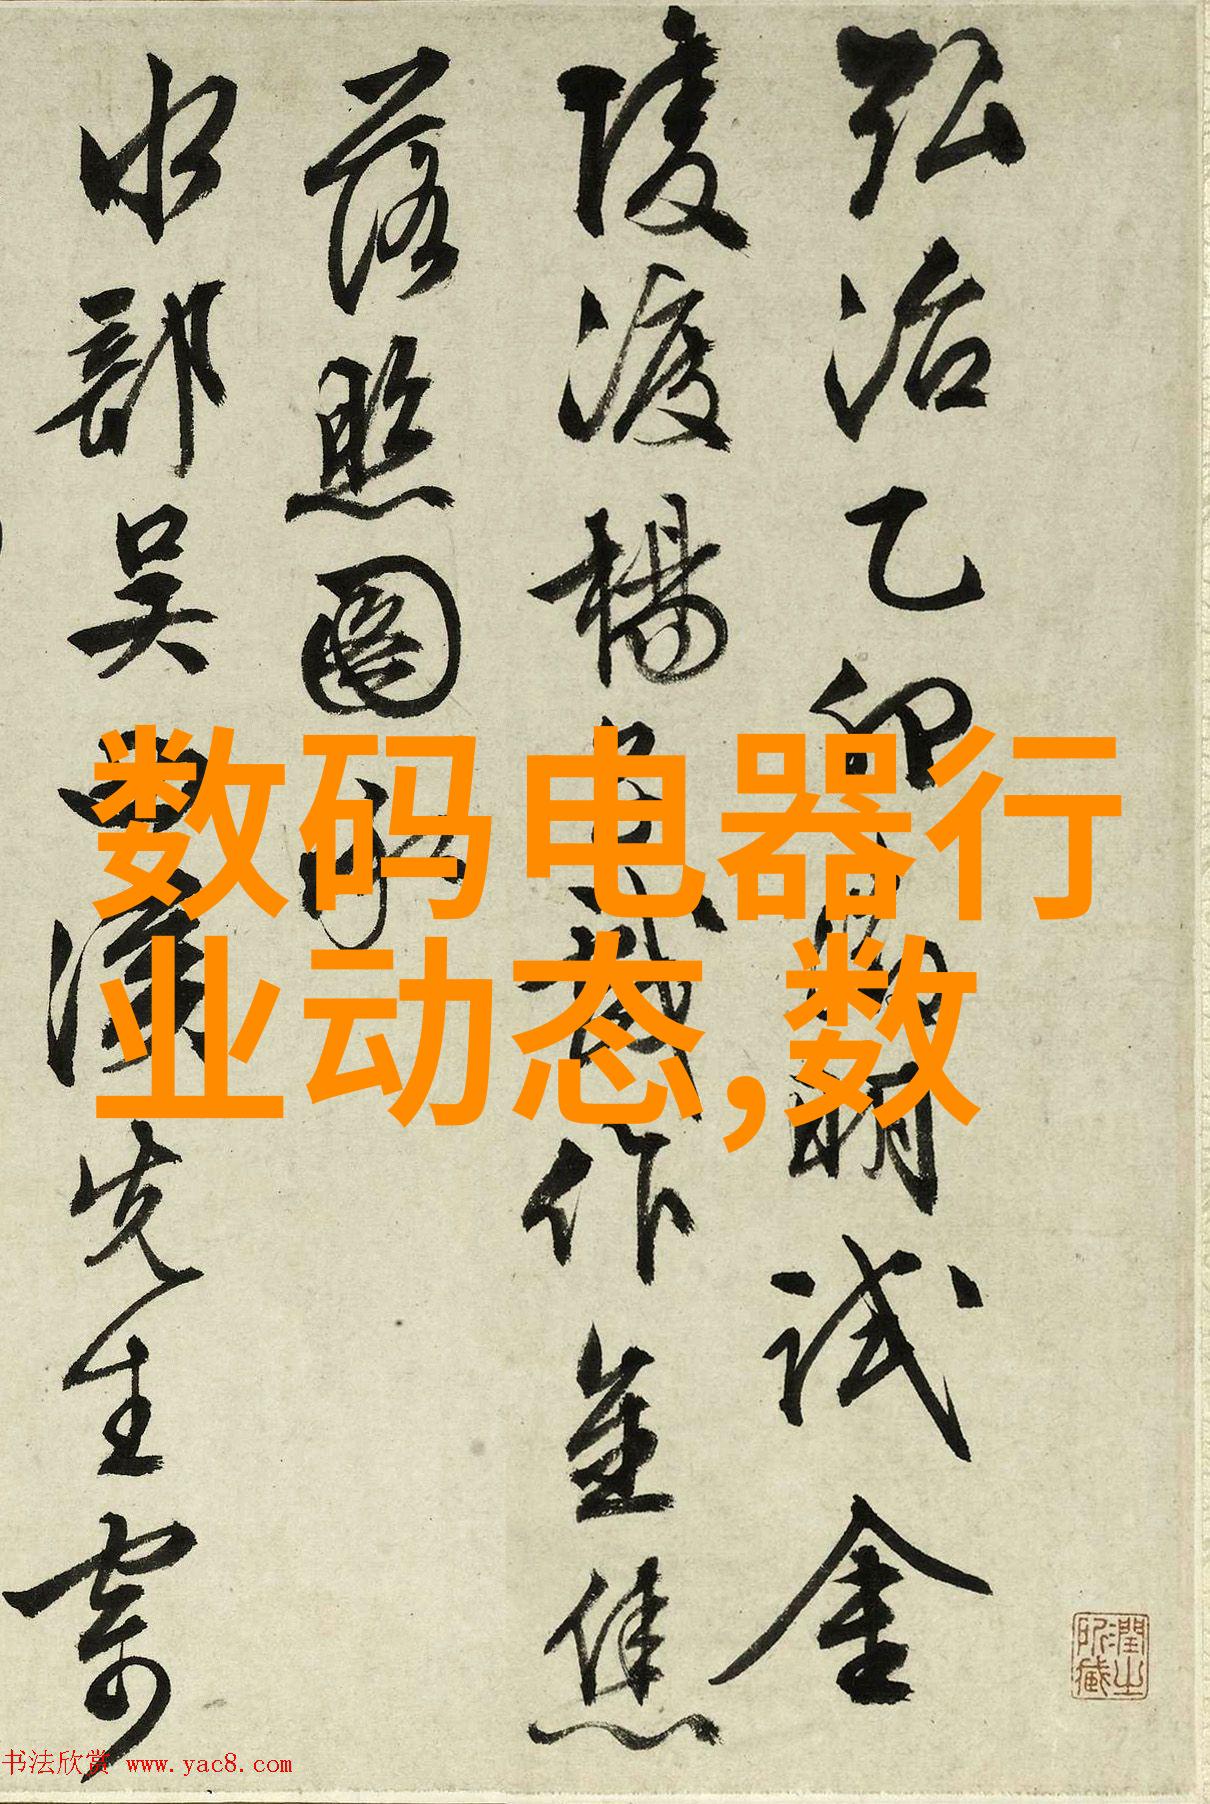 弘治乙卯試金
陵渡楊作金焦
落照圖
水部吴先生寄
数码电器行
业动态,数
潤之
所藏
书法欣赏 www.yac8.com